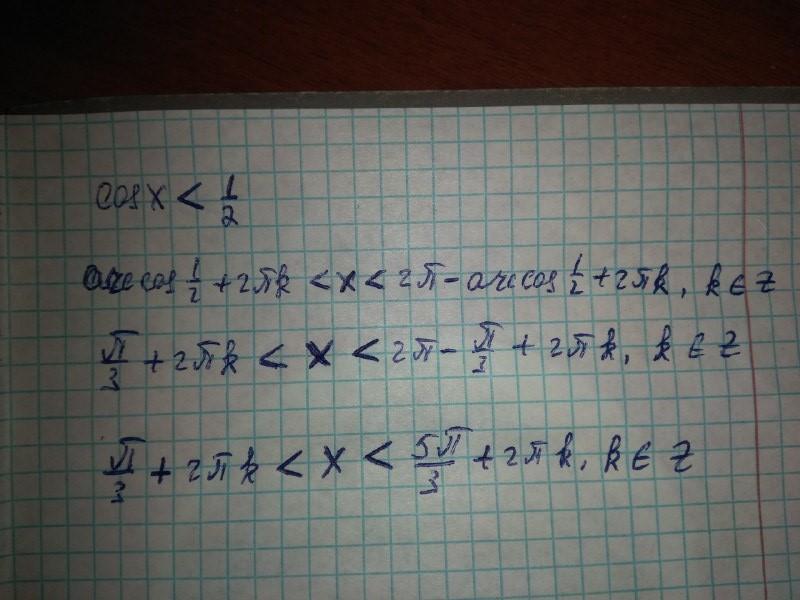 cos x < 1/2
arccos 1/2 + 2πk < x < 2π - arccos 1/2 + 2πk, k ∈ Z
π/3 + 2πk < x < 2π - π/3 + 2πk, k ∈ Z
π/3 + 2πk < x < 5π/3 + 2πk, k ∈ Z